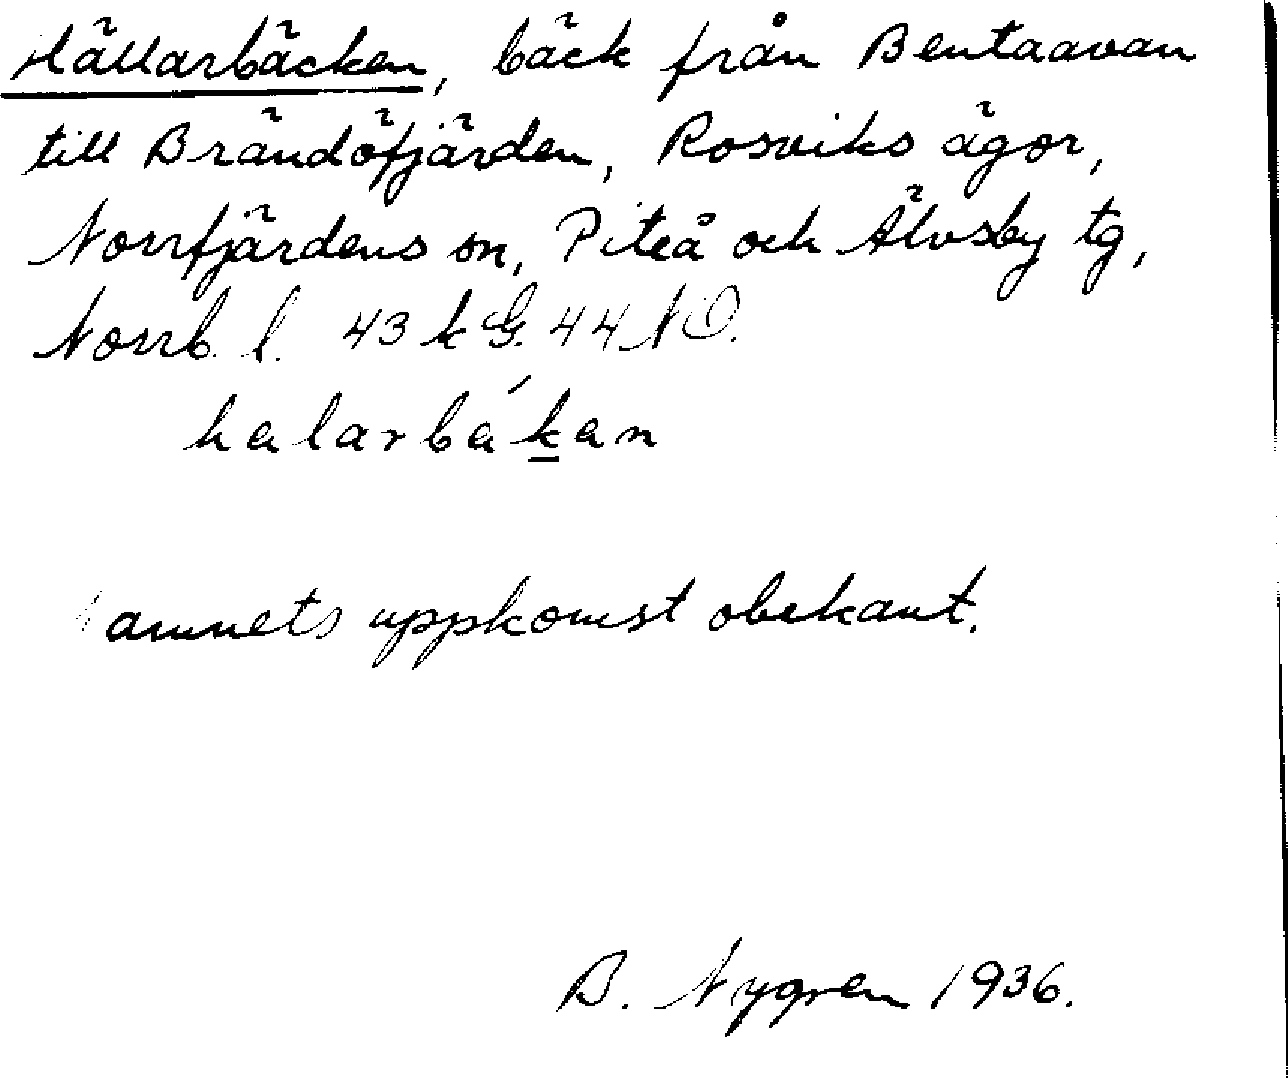 Hällarbäcken, bäck från Bentaavan
till Brändöfjärden, Rosviks ägor,
Norrfjärdens sn, Piteå och Älvsby tg,
Norrb. l. 43 k G. 44 NO.
halarbákan
Namnets uppkomst obekant.
B. Nygren 1936.